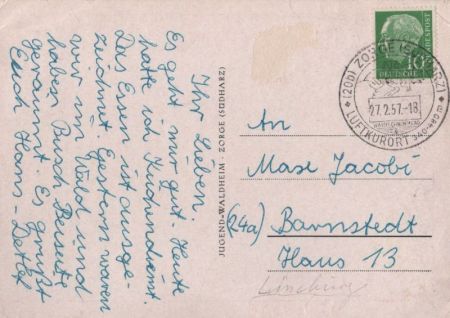 Ihr Lieben.
Es geht mir gut. Heute
hatte ich Küchendienst.
Das Essen ist ausge-
zeichnet. Gestern waren
wir im Wald und
haben Busch Beseite
geräumt. Es grüßt
Euch Hans-Detlef
JUGEND-WALDHEIM · ZORGE (SÜDHARZ)
DEUTSCHE BUNDESPOST
10
(20b) ZORGE (SÜDHARZ)
27.2.57.-18
LUFTKURORT 340-480 m
An
Max Jacobi
(24a) Barnstedt
Haus 13
Lüneburg